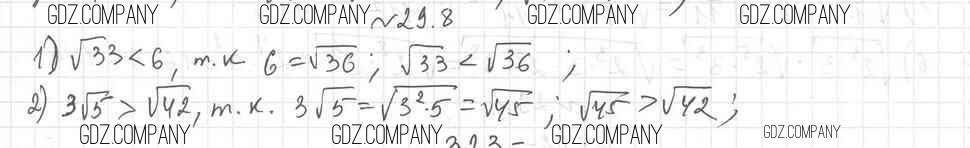 GDZ.COMPANY GDZ.COMPANY GDZ.COMPANY GDZ.COMPANY
№29.8
1) √33 < 6, т.к 6 = √36; √33 < √36;
2) 3√5 > √42, т.к. 3√5 = √3²·5 = √45; √45 > √42;
GDZ.COMPANY GDZ.COMPANY GDZ.COMPANY GDZ.COMPANY